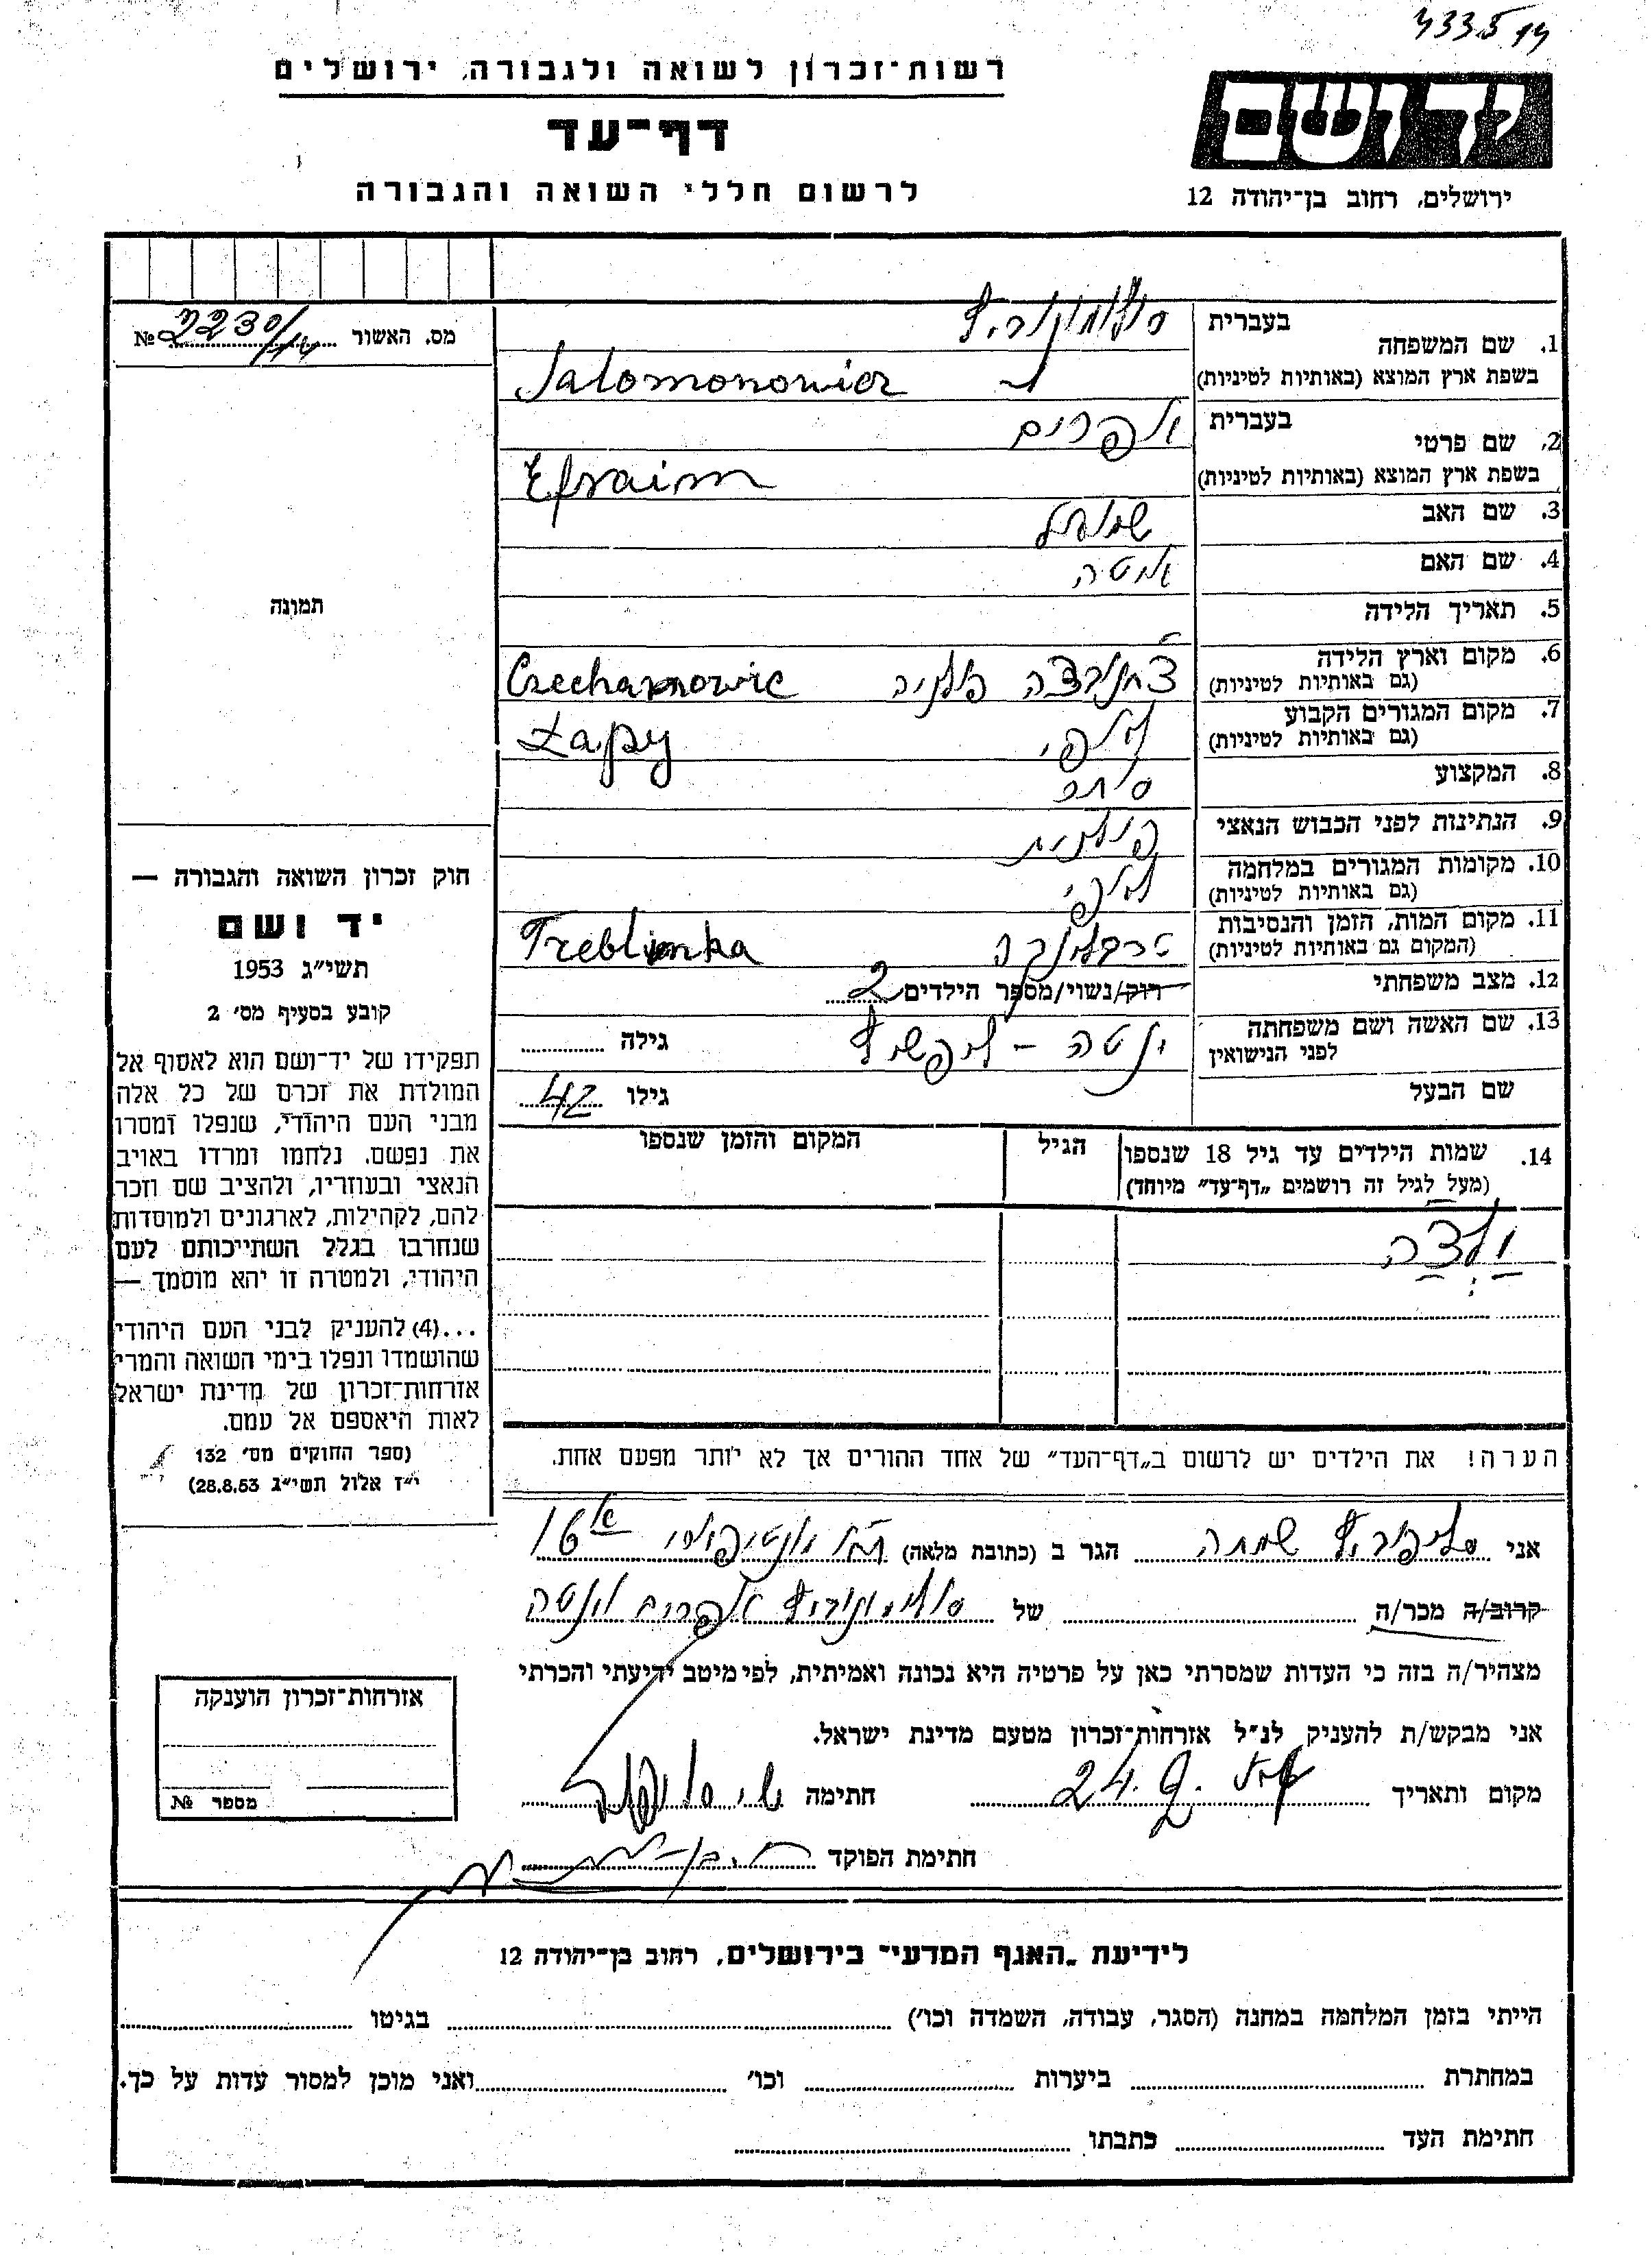 433514
רשות־זכרון לשואה ולגבורה, ירושלים
דף־עד
לרשום חללי השואה והגבורה
יד ושם
ירושלים, רחוב בן־יהודה 12
מס. האשור 2230/14 №
תמונה
חוק זכרון השואה והגבורה —
יד ושם
תשי״ג 1953
קובע בסעיף מס׳ 2
תפקידו של יד־ושם הוא לאסוף אל
המולדת את זכרם של כל אלה
מבני העם היהודי, שנפלו ומסרו
את נפשם, נלחמו ומרדו באויב
הנאצי ובעוזריו, ולהציב שם וזכר
להם, לקהילות, לארגונים ולמוסדות
שנחרבו בגלל השתייכותם לעם
היהודי, ולמטרה זו יהא מוסמך —
...(4) להעניק לבני העם היהודי
שהושמדו ונפלו בימי השואה והמרי
אזרחות־זכרון של מדינת ישראל
לאות היאספם אל עמם.
(ספר החוקים מס׳ 132
י״ז אלול תשי״ג 28.8.53)
1. שם המשפחה בעברית סולומונוביץ
בשפת ארץ המוצא (באותיות לטיניות) Salomonowicz
2. שם פרטי בעברית אפרים
בשפת ארץ המוצא (באותיות לטיניות) Efraim
3. שם האב שמואל
4. שם האם איטה
5. תאריך הלידה
6. מקום וארץ הלידה
(גם באותיות לטיניות) פולניה
7. מקום המגורים הקבוע
(גם באותיות לטיניות) לאפי Łapy
8. המקצוע סוחר
9. הנתינות לפני הכבוש הנאצי פולנית
10. מקומות המגורים במלחמה
(גם באותיות לטיניות) לאפי
11. מקום המות, הזמן והנסיבות
(המקום גם באותיות לטיניות) טרבלינקה Treblinka
12. מצב משפחתי רווק/נשוי/מספר הילדים 2
13. שם האשה ושם משפחתה
לפני הנישואין ינטה – ליפשיץ גילה
שם הבעל גילו 42
14. שמות הילדים עד גיל 18 שנספו
(מעל לגיל זה רושמים „דף־עד״ מיוחד) הגיל המקום והזמן שנספו
הערה! את הילדים יש לרשום ב„דף־העד״ של אחד ההורים אך לא יותר מפעם אחת.
אני שמחה הגר ב (כתובת מלאה) 16 א
קרוב/ה מכר/ה של סולומונוביץ אפרים וינטה
מצהיר/ה בזה כי העדות שמסרתי כאן על פרטיה היא נכונה ואמיתית, לפי מיטב ידיעתי והכרתי
אני מבקש/ת להעניק לנ״ל אזרחות־זכרון מטעם מדינת ישראל.
מקום ותאריך 24.9. חתימה
חתימת הפוקד
אזרחות־זכרון הוענקה
מספר №
לידיעת „האגף המדעי״ בירושלים, רחוב בן־יהודה 12
הייתי בזמן המלחמה במחנה (הסגר, עבודה, השמדה וכו׳) בגיטו
במחתרת ביערות וכו׳ ואני מוכן למסור עדות על כך.
חתימת העד כתבתו